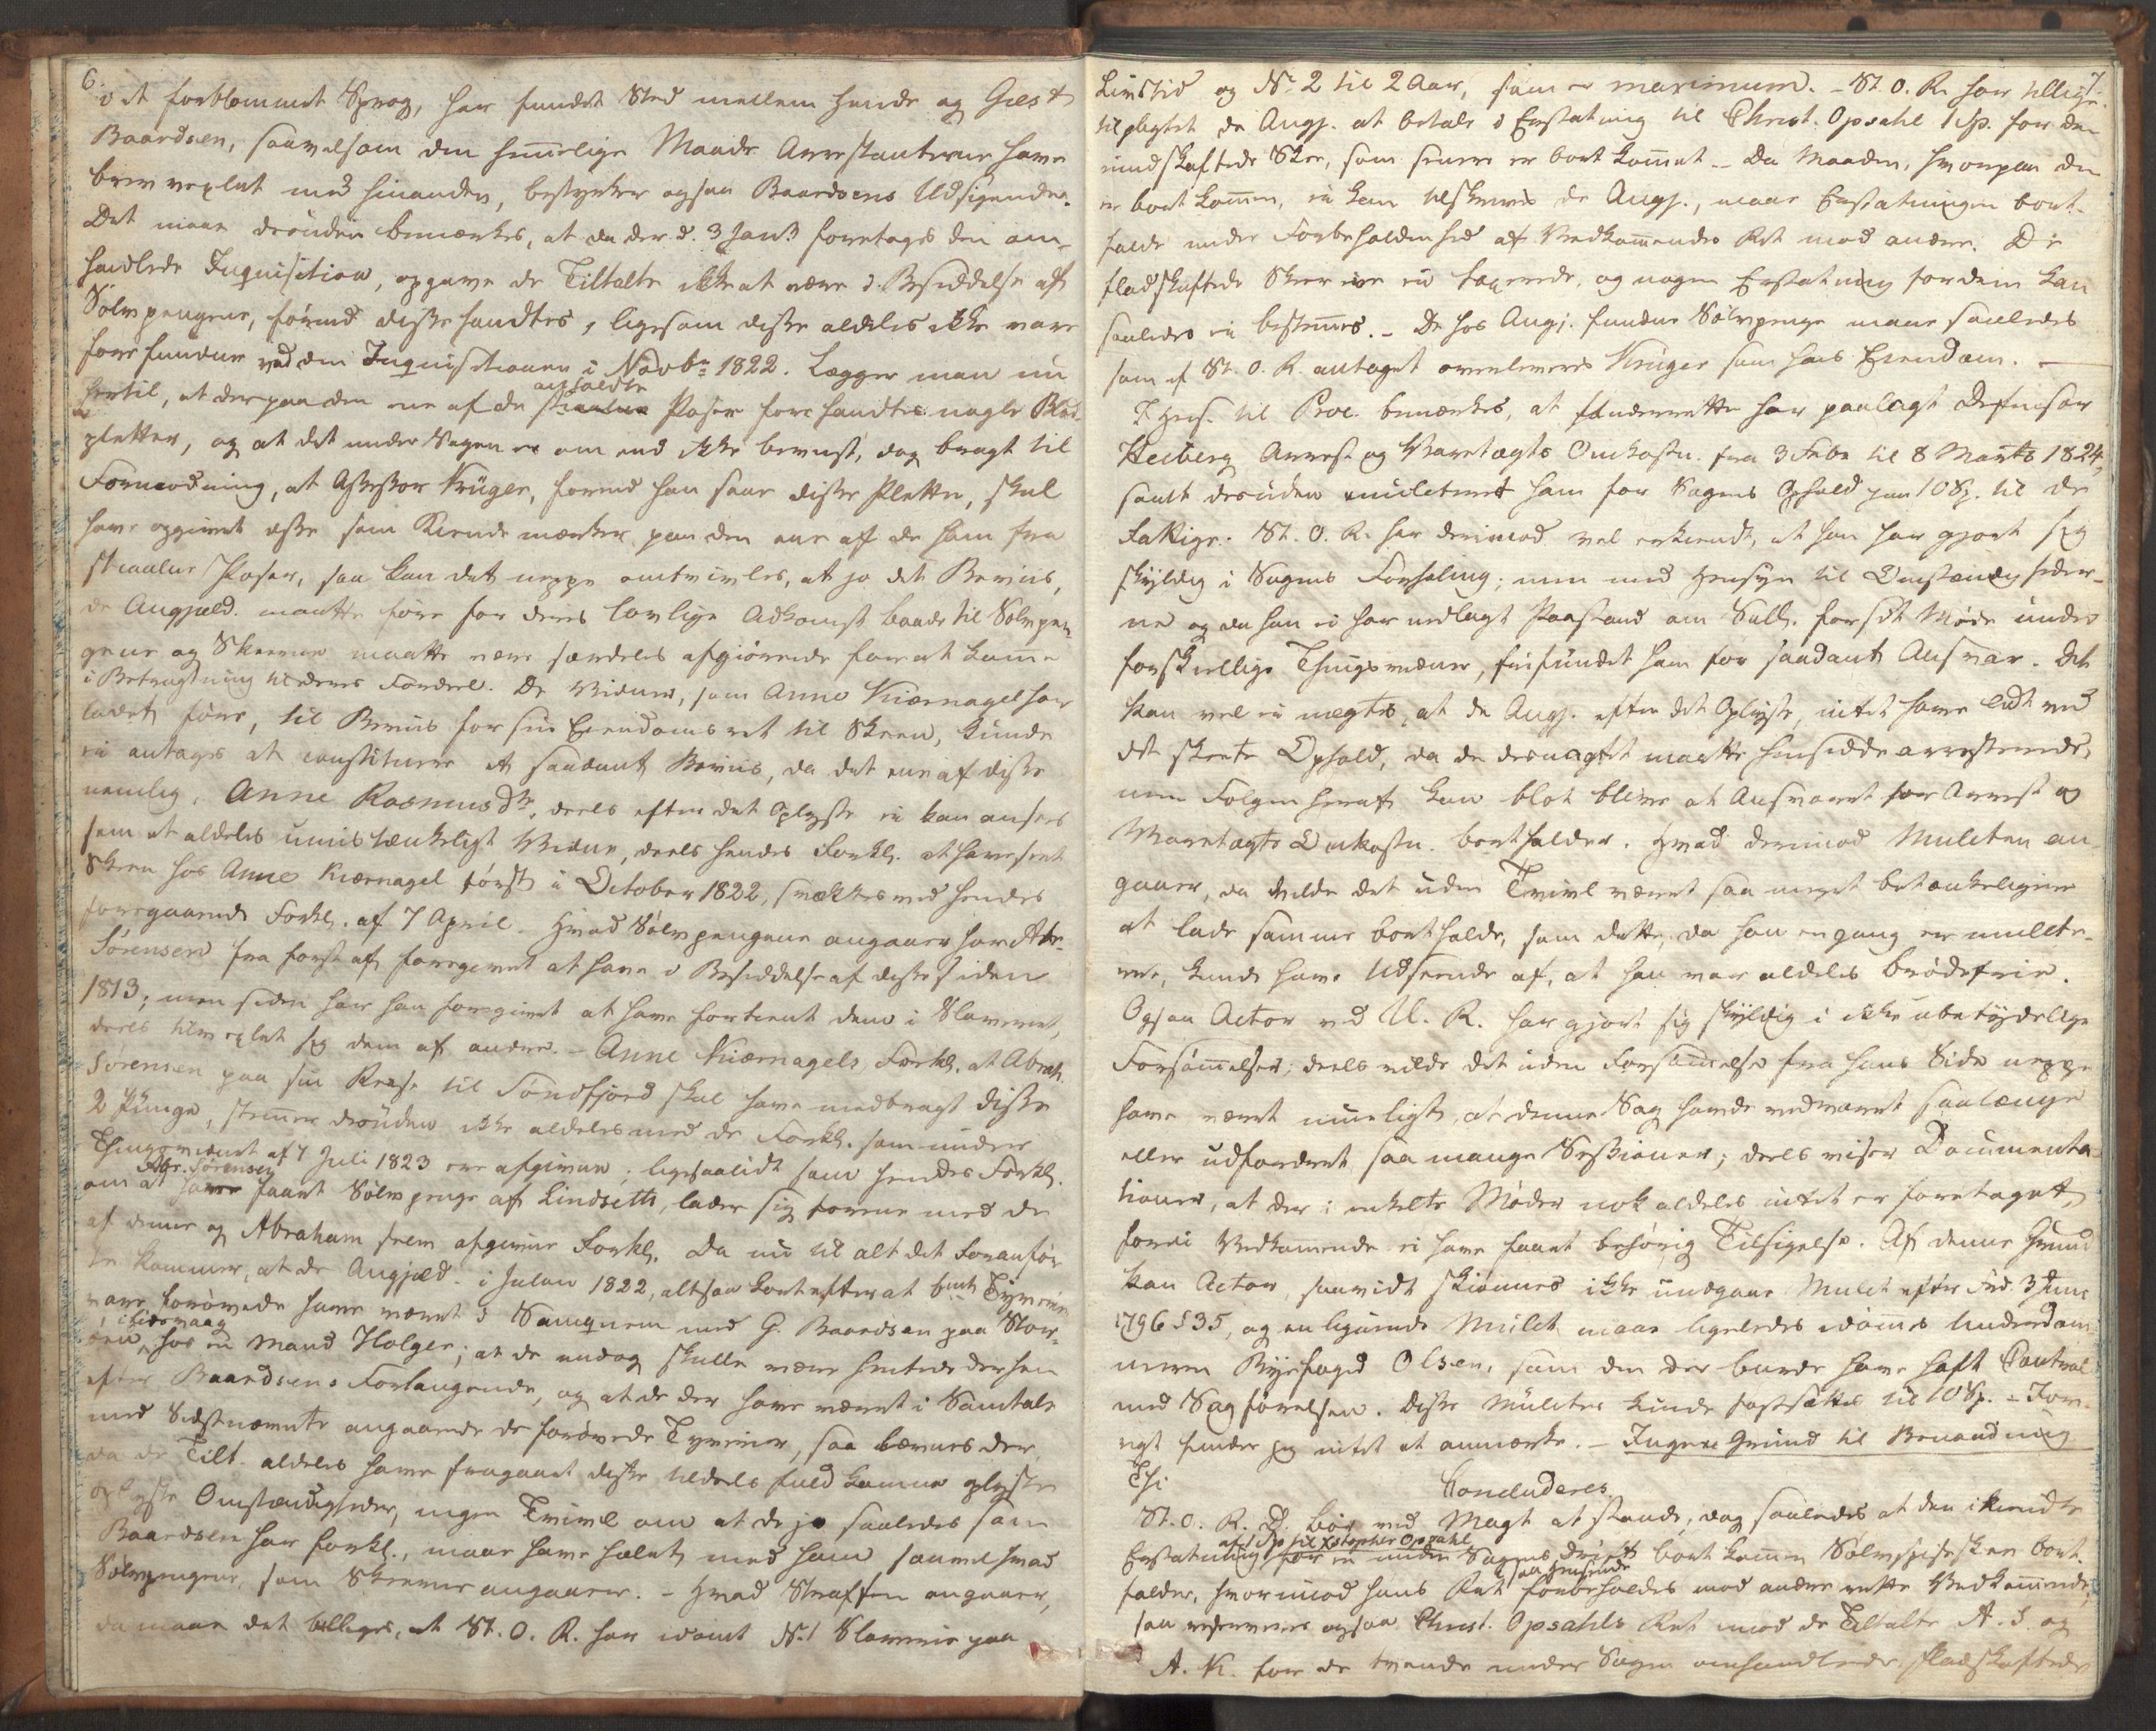 6.
i et forblommet Sprog, har fundet Sted mellem hende og Giest
Baardsen, saavelsom den hemelige Maade Arrestanterne have
brevvexlet med hinanden, bestyrker ogsaa Baardsens Udsigende.
Det maae desuden bemærkes, at da der d. 3 Janr foretages den om-
handlede Inquisition, opgave de Tiltalte ikke at være i Besiddelse af
Sølvpengene, førend disse fandtes, ligesom disse aldeles ikke vare
forefundne ved den Inquisitionen i Novbr 1822. Lægger man nu
hertil, at der paa den ene af de anholdte Poser forefandtes nogle Blæk
pletter, og at det under Sagen er om end ikke beviist, dog bragt til
Formodning, at Assessor Krüger, førend han saae disse Pletter, skal
have opgivet disse som Kiendemærker paa den ene af de ham fra
stiaalne Poser, saa kan det neppe omtvivles, at jo det Beviis,
de Angjæld. maatte føre for deres lovlige Adkomst baade til Sølvpen
gene og Skeerne maatte være særdeles afgiørende for at komme
i Betragtning til deres Fordeel. De Vidner, som Anne Kiærnagel har
ladet føre, til Beviis for sin Eiendomsret til Skeen, kunde
ei antages at constituere et saadant Beviis, da det ene af disse
nemlig, Anne Rasmusdtr, deels efter det Oplyste ei kan ansees
som et aldeles umistænkeligt Vidne, deels hendes Forkl. at have seet
Skeen hos Anne Kiærnagel først i October 1822, svækkes ved hendes
foregaaende Forkl. af 7 April. Hvad Sølvpengene angaaer har Abr.
Sørensen fra først af foregivet at have i Besiddelse af disse siden
1813; men siden har han foregivet at have fortient dem i Slaveriet,
deels tilvexlet sig dem af andre. - Anne Kiærnagels Forkl. at Abrah.
Sørensen paa sin Reise til Søndfjord skal have medbragt disse
2 Punge, stemer desuden ikke aldeles med de Forkl. som under
Thingsvidnet af 7 Juli 1823 ere afgivne; ligesaalidt som hendes Forkl.
Abr. Sørensen
om at have faaet Sølvpenge af Lindseth, lader sig forene med de
af denne og Abraham selv afgivne Forkl. Da nu til alt det Foranfør
te kommer, at de Angjæld. i Julen 1822, altsaa kort efter at bmte Tyverier
vare forøvede have været i Samqvem med G. Baardsen paa Stor-
i Eidsvaag
øen, hos en Mand Holger; at de endog skulle være hentede derhen
efter Baardsens Forlangende, og at de der have været i Samtale
med Sidstnævnte angaaende de forøvede Tyverier, saa levnes der,
da de Tilt. aldeles have fragaaet disse tildeels fuldkomne oplyste
oplyste Omstændigheder, ingen Tvivl om at de jo saaledes som
Baardsen har forkl., maae have hælet med ham saavel hvad
Sølvpengene, som Skeerne angaaer. - Hvad Straffen angaaer,
da maae det billiges, at St. O. R. har idømt No 1 Slaverie paa
7.
Livstid og No 2 til 2 Aar, som er maximum. - St. O. R. har tillige
tilpligtet de Angj. at betale i Erstatning til Christ. Opsahl 1 Sp. for den
rundskaftede Skee, som senere er bortkommet. - Da Maaden, hvorpaa den
er bortkommen, ei kan tilskrives de Angj., maae Erstatningen bort-
falde under Forbeholdenhed af Vedkommendes Ret mod andre. De
fladskaftede Skeer ere ei taxerede, og nogen Erstatning for dem kan
saaledes ei bestemmes. - De hos Angj. fundne Sølvpenge maae saaledes
som af St. O. R. antaget overleveres Krüger som hans Eiendom. -
I Hens. til Proc. bemærkes, at Underretten har paalagt Defensor
Heiberg Arrest og Varetægts Omkostn. fra 3 Febr til 8 Marts 1824,
samt desuden mulcteret ham for Sagens Ophold paa 10 Sp. til de
Fattige. St. O. R. har derimod vel erkiendt, at han har gjort sig
skyldig i Sagens Forhaling; men med Hensyn til Omstændigheder-
ne og da han ei har nedlagt Paastand om Sall. for sit Møde under
forskiellige Thingsvidner, frifundet ham for saadant Ansvar. Det
kan vel ei nægtes, at de Angj. efter det Oplyste, intet have lidt ved
det skeete Ophold, da de desuagtet maatte hensidde arresterede,
men Følgen heraf kan blot blive at Ansvaret for Arrest og
Varetægts Omkostn. bortfalder. Hvad derimod Mulcten an
gaaer, da vilde det uden Tvivl været saa meget betænkeligere
at lade samme bortfalde, som dette, da han engang er mulcte-
ret, kunde have Udseende af, at han var aldeles brødefrie.
Ogsaa Actor ved U. R. har gjort sig skyldig i ikke ubetydelige
Forsømmelser; deels vilde det uden Forsømmelse fra hans Side neppe
have været mueligt, at denne Sag havde vedvaret saalænge
eller udfordret saa mange Sessioner; deels viser Documenta-
tionen, at der i enkelte Møder nok aldeles intet er foretaget,
fordi Vedkommende ei have faaet behørig Tilsigelse. Af denne Grund
kan Actor, saavidt skiønnes ikke undgaae Mulct efter Frd. 3 Juni
1796 § 35, og en lignende Mulct maae ligeledes idømmes Underdom-
meren Byefoged Olsen, som den der burde have haft Control
med Sagførelsen. Disse Mulcter kunde fastsættes til 10 Sp. - For-
rigt finder jeg intet at anmærke. - Ingen Grund til Benaadning
Thi
Concluderes
St. O. R. D. bør ved Magt at stande, dog saaledes at den ikiendte
af 1 Sp til Xstopher Opsahl
Erstatning for en under Sagens Drift bortkommen Sølvspiseskee bort-
saa henseende
falder, hvorimod hans Ret forbeholdes mod andre rette Vedkommende,
saa reserveres ogsaa Christ. Opsahls Ret mod de Tiltalte A. S. og
A. K. for de tvende under Sagen omhandlede fladskaftede